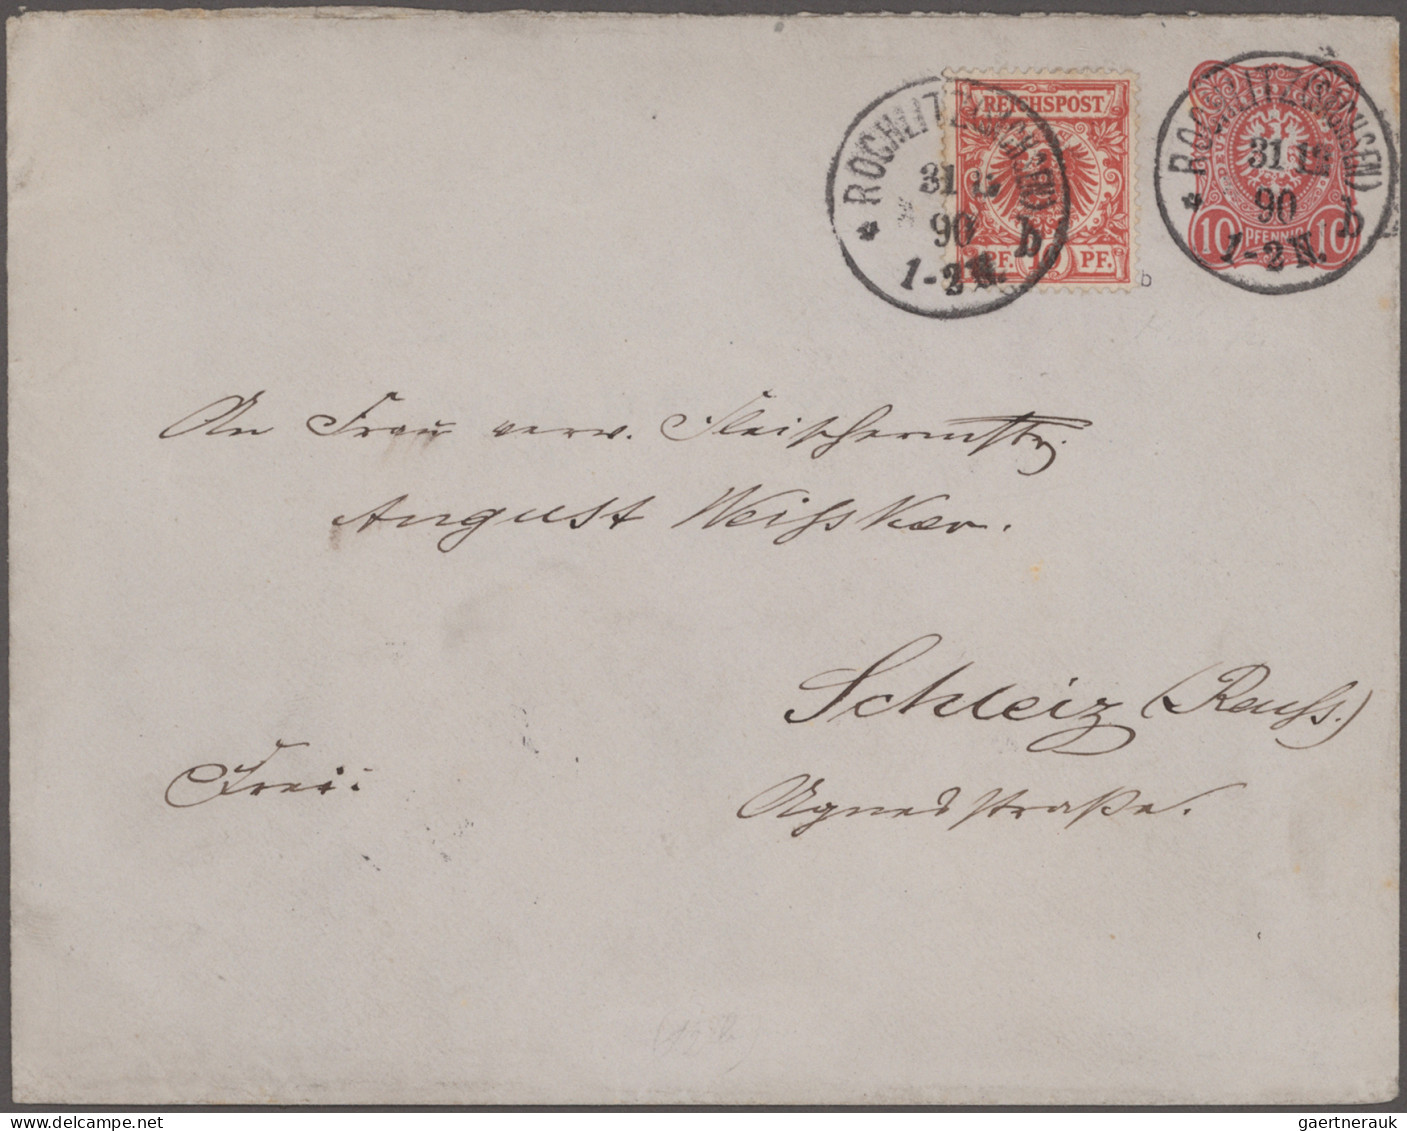 REICHSPOST
PF. 10 PF.
ROCHLITZ (SACHSEN)
31 12
90
1-2 N.
b
10 PFENNIG 10
ROCHLITZ (SACHSEN)
31 12
90
1-2 N.
b
b
An Frau verw. Fleischermstr.
August Weissker.
Schleiz (Reuss.)
Frei.
Agnesstraße.
gaertnerauk